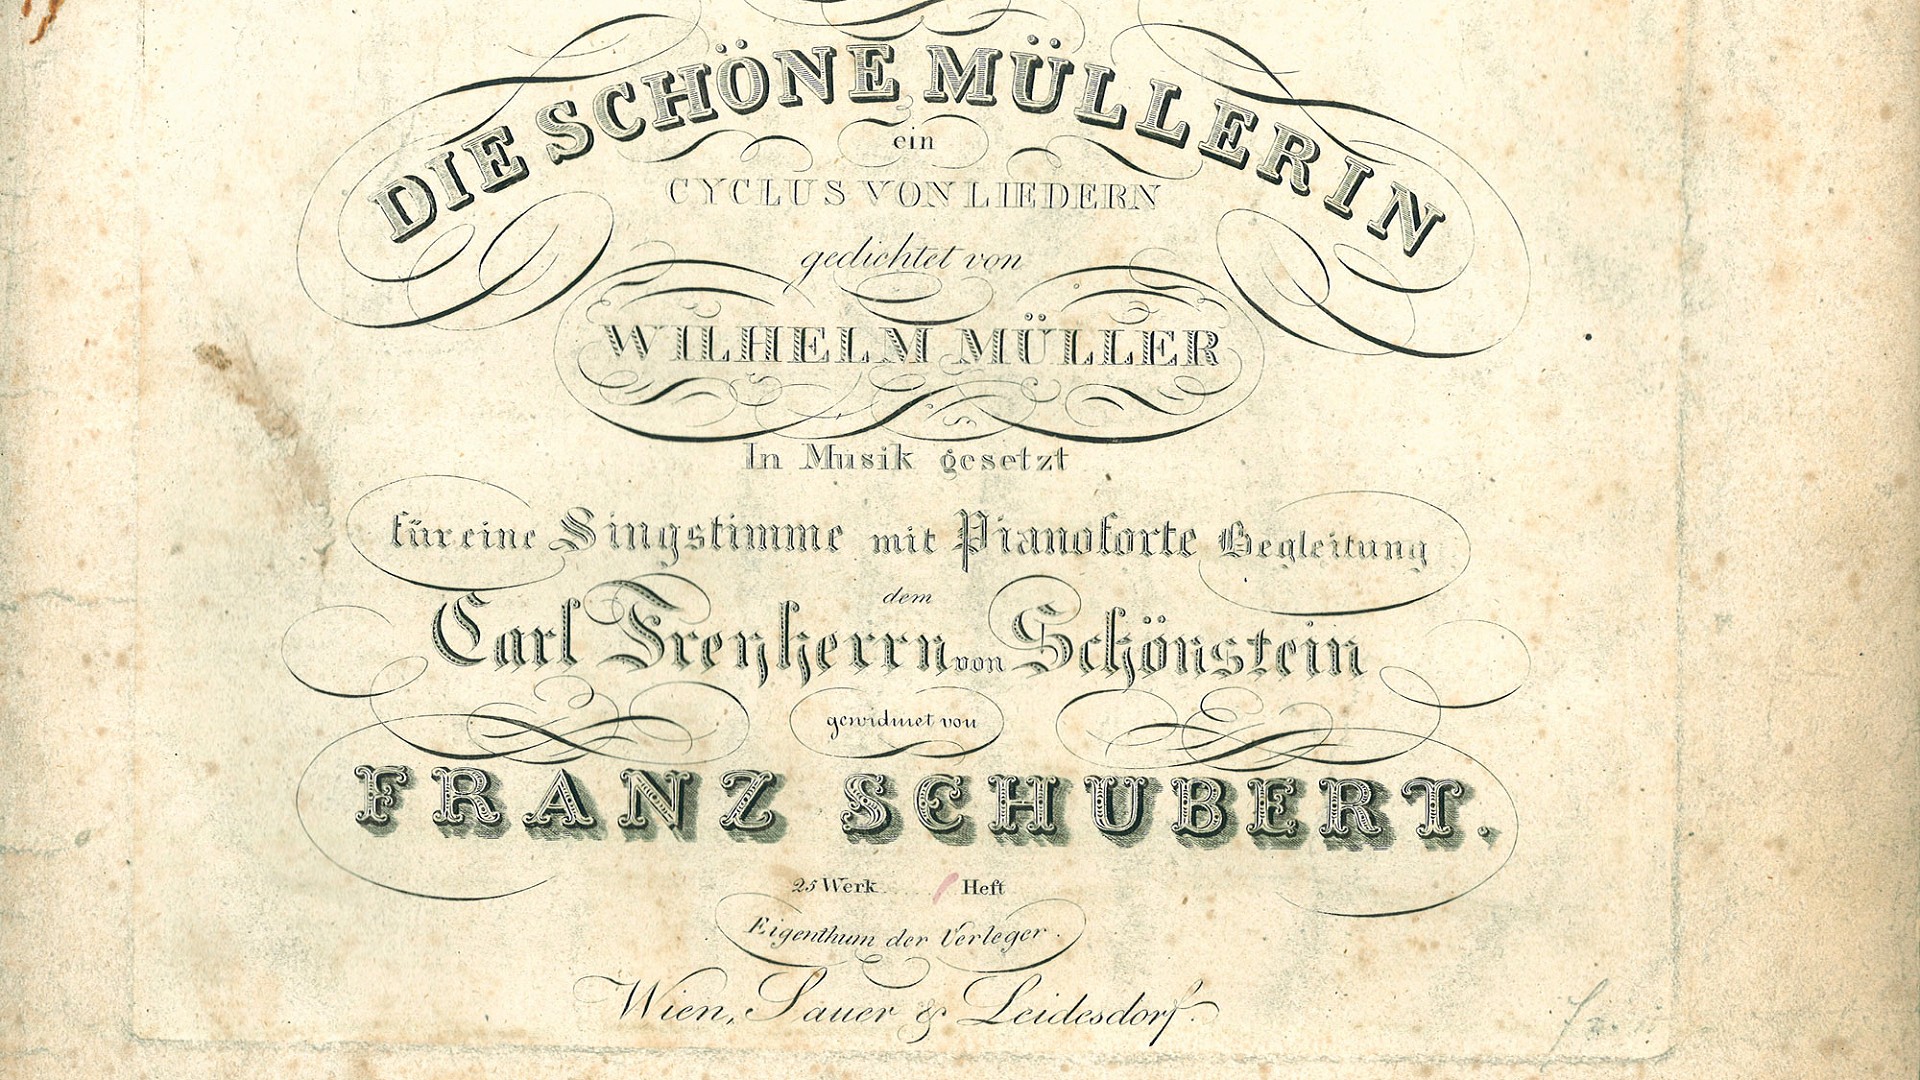 DIE SCHÖNE MÜLLERIN
ein
CYCLUS VON LIEDERN
gedichtet von
WILHELM MÜLLER
In Musik gesetzt
für eine Singstimme mit Pianoforte Begleitung
dem
Carl Freyherrn von Schönstein
gewidmet von
FRANZ SCHUBERT.
25 Werk Heft
Eigenthum der Verleger.
Wien, Sauer & Leidesdorf.